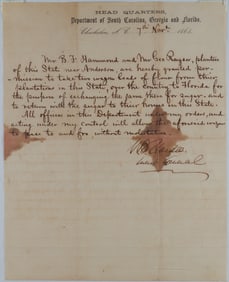 HEAD QUARTERS,
Department of South Carolina, Georgia and Florida.
Charleston, S. C. 7th Nov. 1863.
Mr. B. F. Hammond and Mr. Geo Seager, planters
of this State near Anderson, are hereby granted per-
mission to take two wagon loads of flour from their
plantations in this State, over the country to Florida for
the purpose of exchanging the same there for sugar, and
to return with the sugar to their homes in this State.
All officers in this Department under my orders, and
acting under my control will allow the aforesaid wagons
to pass to and fro without molestation.
General